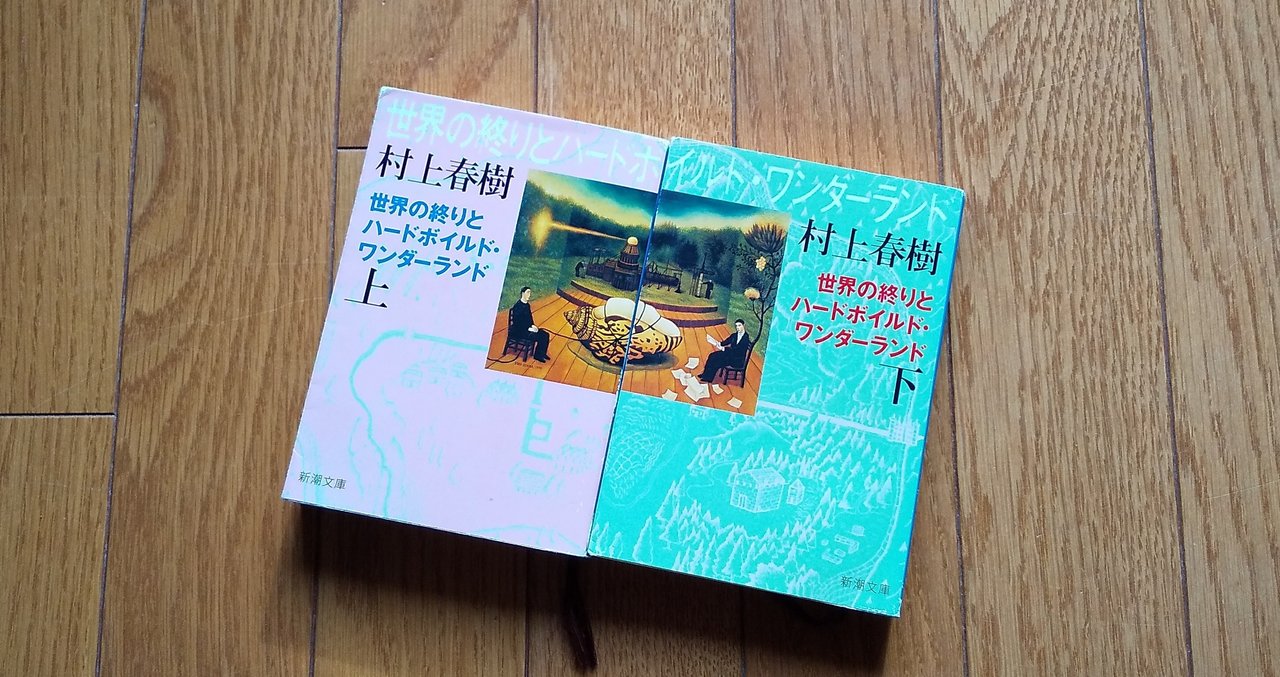 世界の終りとハードボイルド・ワンダーランド
村上春樹
世界の終りと
ハードボイルド・
ワンダーランド
上
新潮文庫
村上春樹
世界の終りと
ハードボイルド・
ワンダーランド
下
新潮文庫